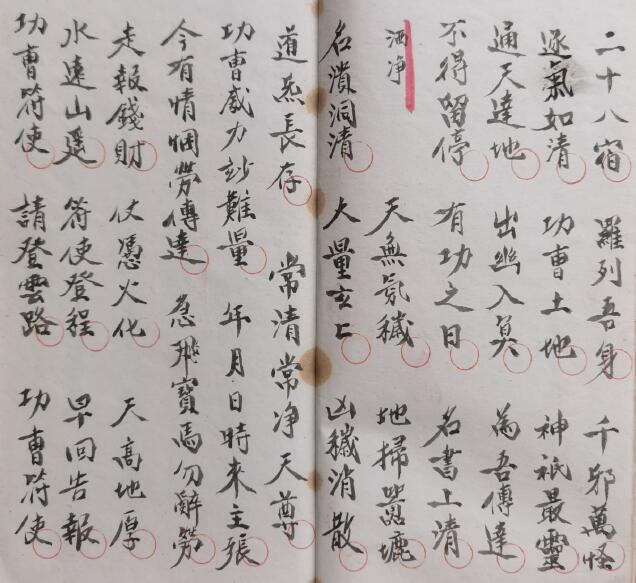 二十八宿 羅列吾身 千邪萬怪
逐氣如清 功曹土地 神祇最靈
通天達地 出幽入冥 為吾傳達
不得留停 有功之日 名書上清
洒净 天無氛穢 地掃 塵
名濆洞清 大量玄上 凶穢消散
道炁長存 常清常净天尊
功曹威力訬難量 年月日時來主張
今有情悃勞傳達 急飛寶馬勿辭勞
走報錢財 仗憑火化 天高地厚
水遠山遥 符使登程 早回告報
功曹符使 請登雲路 功曹符使